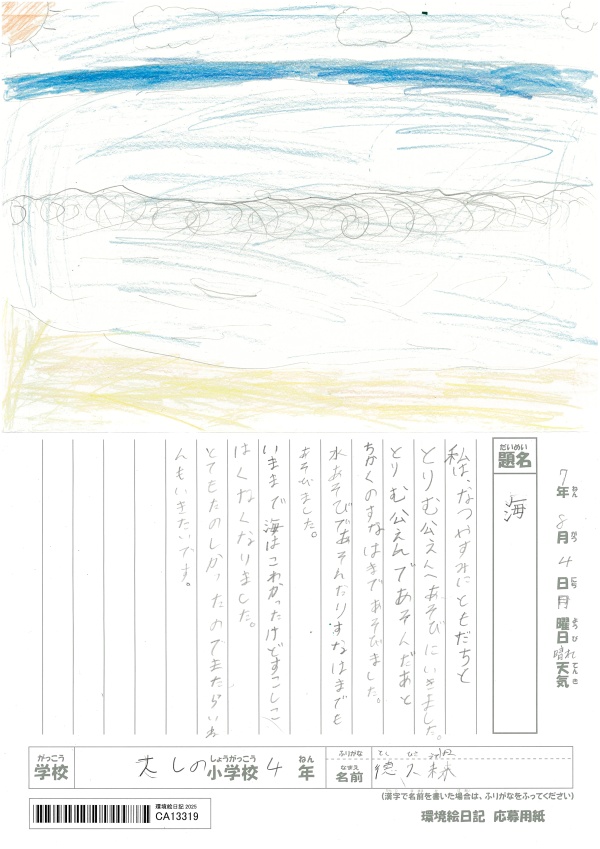 7年ねん 8月がつ 4日にち 月曜日ようび 晴れ天気てんき
だいめい
題名
海
私は、なつやすみにともだちと
とりむ公えんへあそびにいきました。
とりむ公えんであそんだあと
ちかくのすなはまであそびました。
水あそびであそんだりすなはまでも
あそびました。
いままで海はこわかったけどすこしこ
はくなくなりました。
とてもたのしかったのでまたらいね
んもいきたいです。
がっこう
学校
大しの小学校しょうがっこう 4年ねん
ふりがな
なまえ
名前
徳久
(漢字で名前を書いた場合は、ふりがなをふってください)
環境絵日記 応募用紙
環境絵日記 2025
CA13319